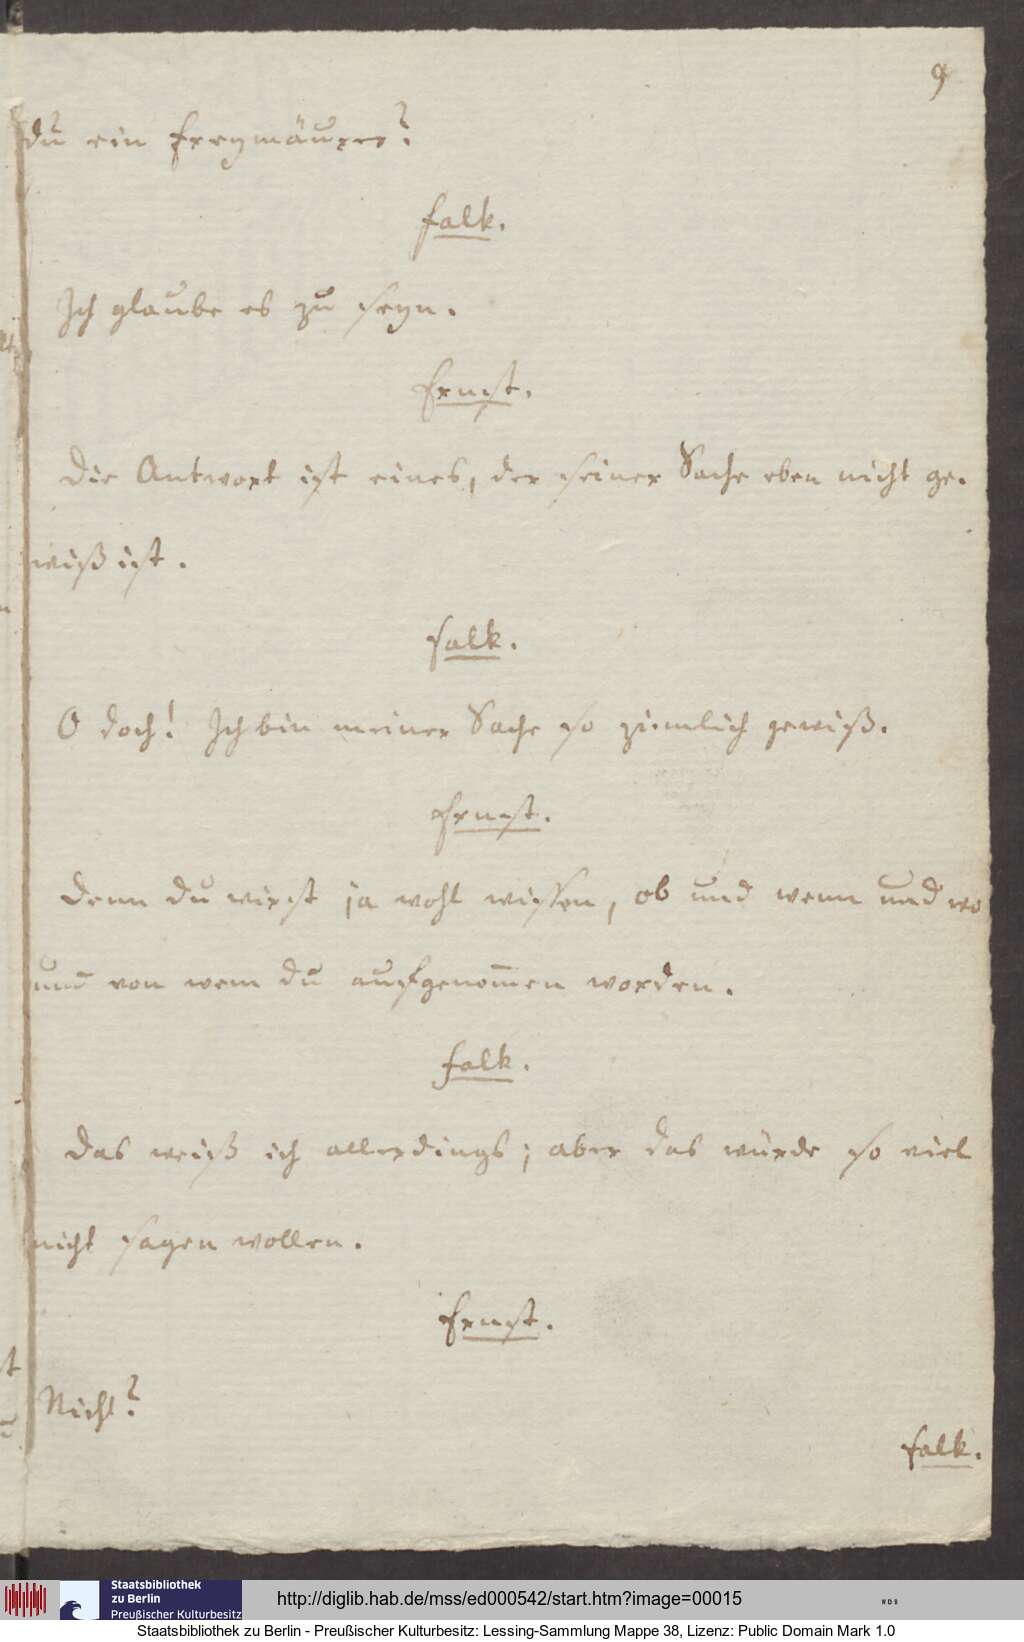 9
du ein Freymäurer?
Falk.
Ich glaube es zu seyn.
Ernst.
Die Antwort ist eines, der seiner Sache eben nicht ge-
wiß ist.
Falk.
O doch! Ich bin meiner Sache so ziemlich gewiß.
Ernst.
Denn du wirst ja wohl wissen, ob und wenn und wo
und von wem du aufgenom̅en worden.
Falk.
Das weiß ich allerdings; aber das würde so viel
nicht sagen wollen.
Ernst.
Nicht?
Falk.
Staatsbibliothek
zu Berlin
Preußischer Kulturbesitz
http://diglib.hab.de/mss/ed000542/start.htm?image=00015
WDB
Staatsbibliothek zu Berlin - Preußischer Kulturbesitz: Lessing-Sammlung Mappe 38, Lizenz: Public Domain Mark 1.0